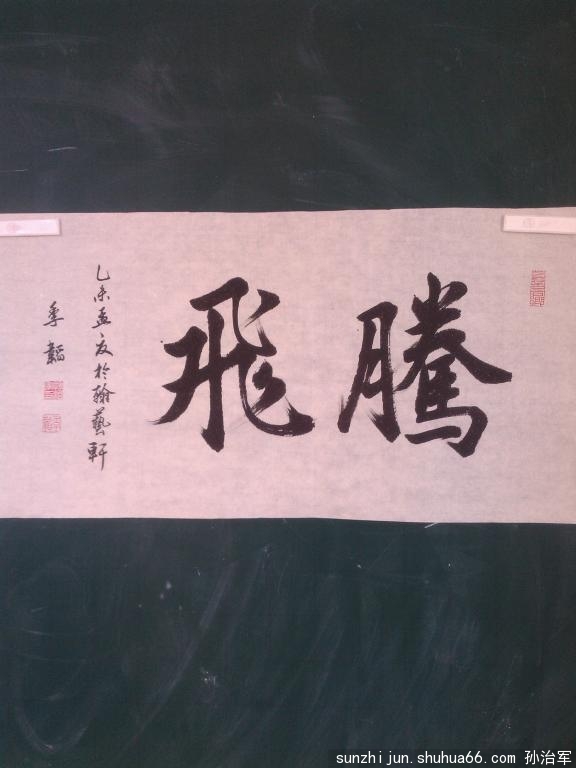 騰飛
乙未孟夏於翰藝軒
季韜
sunzhijun.shuhua66.com 孙治军